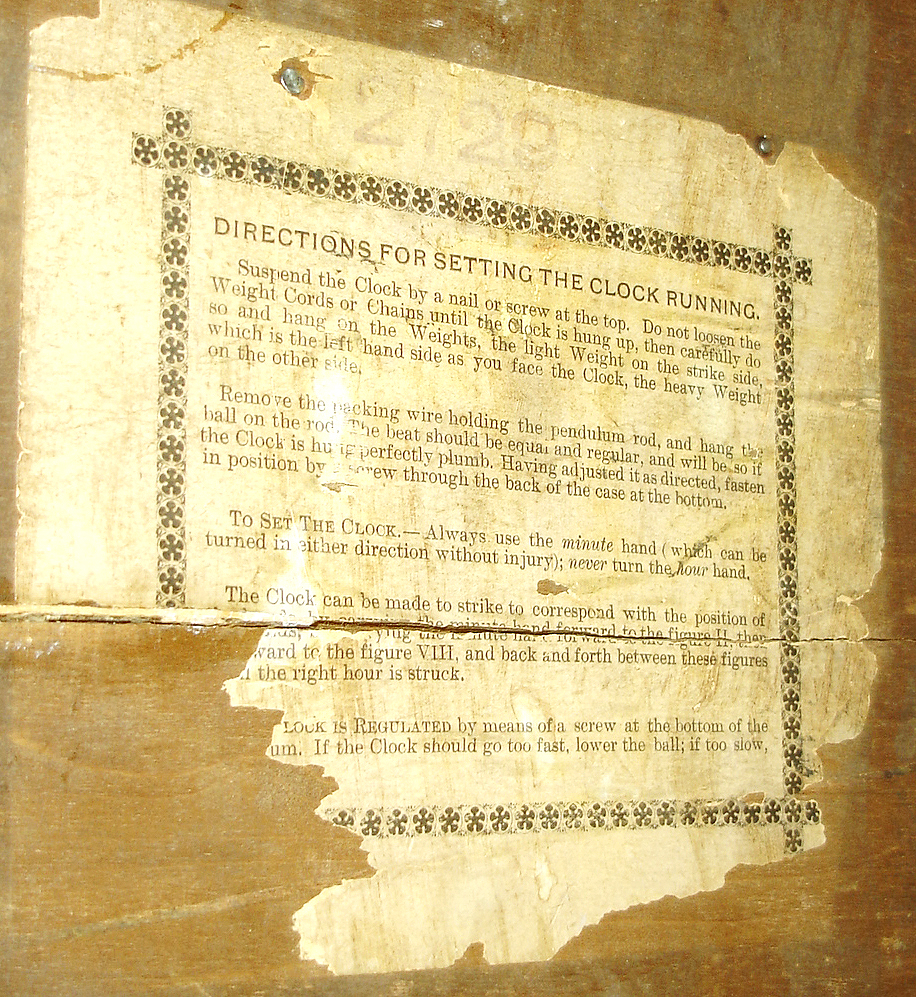 2129
DIRECTIONS FOR SETTING THE CLOCK RUNNING.
Suspend the Clock by a nail or screw at the top. Do not loosen the
Weight Cords or Chains until the Clock is hung up, then carefully do
so and hang on the Weights, the light Weight on the strike side,
which is the left hand side as you face the Clock, the heavy Weight
on the other side.
Remove the packing wire holding the pendulum rod, and hang the
ball on the rod. The beat should be equal and regular, and will be so if
the Clock is hung perfectly plumb. Having adjusted it as directed, fasten
in position by a screw through the back of the case at the bottom.
TO SET THE CLOCK.—Always use the minute hand (which can be
turned in either direction without injury); never turn the hour hand.
The Clock can be made to strike to correspond with the position of
the minute hand forward to the figure II, then
ward to the figure VIII, and back and forth between these figures
the right hour is struck.
LOCK IS REGULATED by means of a screw at the bottom of the
um. If the Clock should go too fast, lower the ball; if too slow,